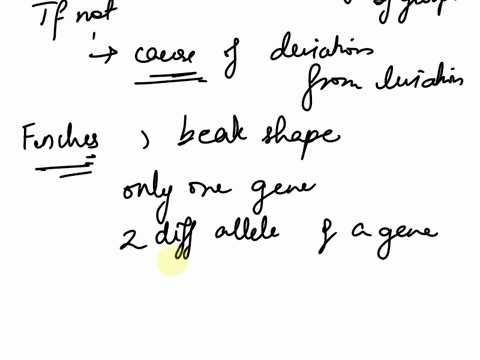 If not of
→ cause of deviations
from
Finches , beak shape
only one gene
2 diff allele of a gene